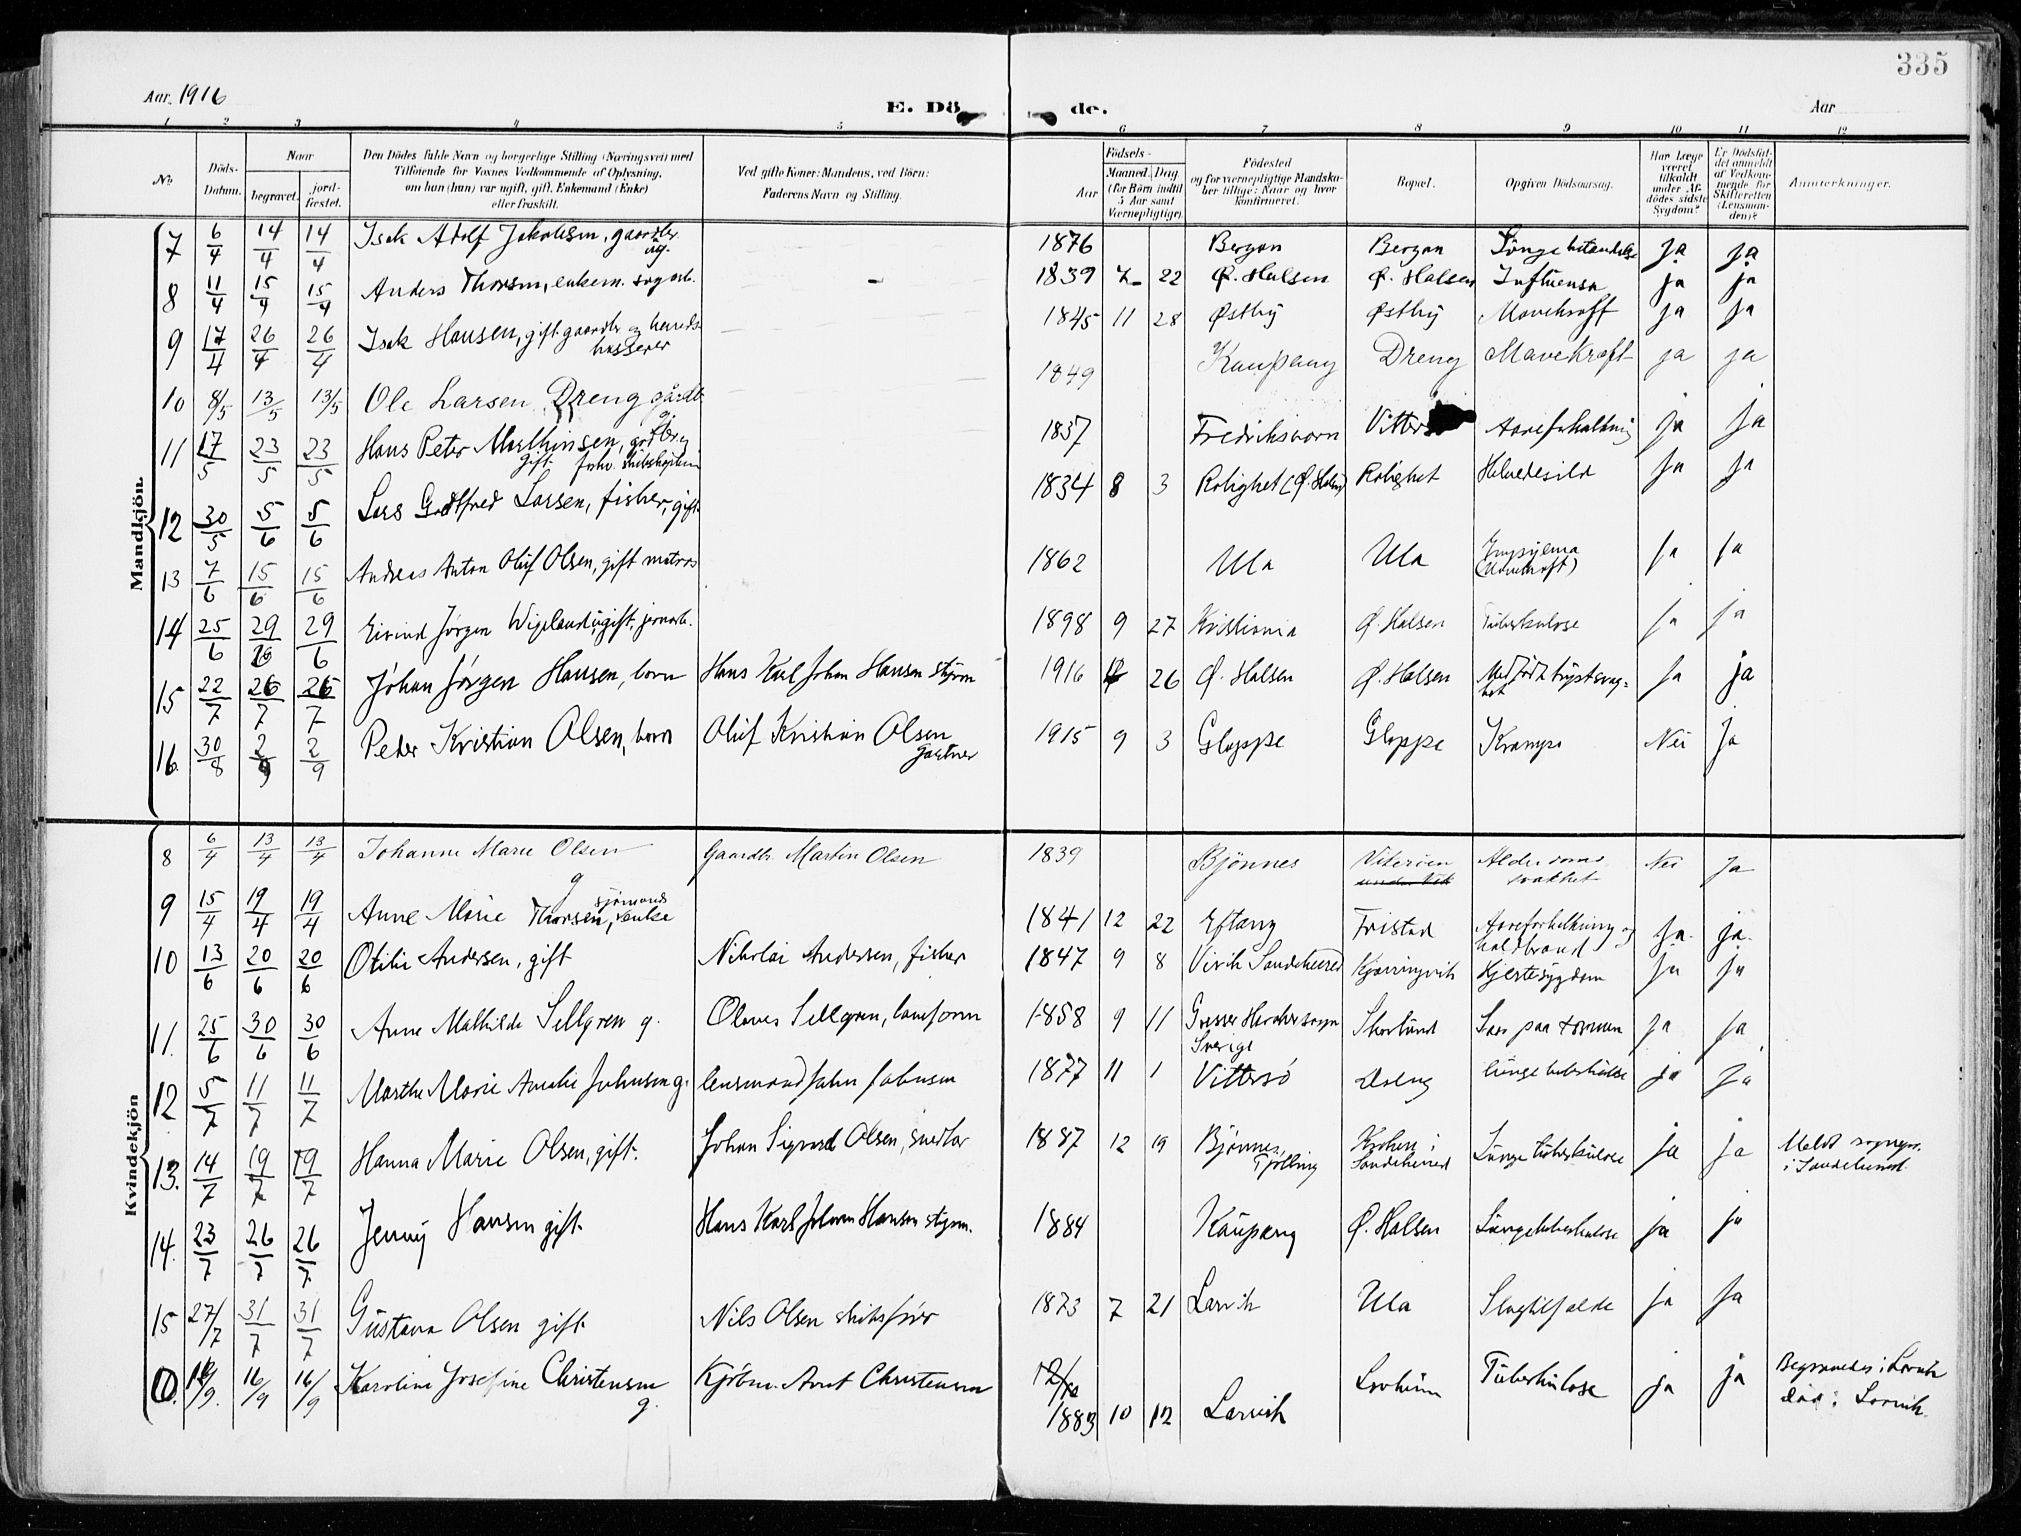 335
Aar. 1916
E. Dö de.
Aar
1 2 3 4 5 6 7 8 9 10 11 12
No.
Döds-Datum.
Naar
begravet.
jord-fæstet.
Den Dödes fulde Navn og borgerlige Stilling (Næringsvei) med
Tilföiende for Voxnes Vedkommende af Oplysning,
om han (hun) var ugift, gift, Enkemand (Enke)
eller fraskilt.
Ved gifte Koner: Mandens, ved Börn:
Faderens Navn og Stilling.
Födsels-
Aar
Maaned. Dag
(for Börn indtil
5 Aar samt
Værnepligtige).
Födested
og for værnepligtige Mandska-
ber tillige: Naar og hvor
konfirmeret.
Bopæl.
Opgiven Dödsaarsag.
Har Læge
været
tilkaldt
under Af-
dödes sidste
Sygdom?
Er Dödsfal-
det anmeldt
af Vedkom-
mende for
Skifteretten
(Lensman-
den)?
Anmærkninger.
Mandkjön.
7 6/4 14/4 14/4 Isak Adolf Jakobsen, gaardbr. ug. 1876 Bergan Bergan Lungebetændelse ja ja
8 11/4 15/4 15/4 Anders Thorsen, enkem. sagarb. - 1839 7 22 Ø. Halsen Ø. Halsen Influensa ja ja
9 17/4 26/4 26/4 Isak Hansen, gift gaardbr og herreds kasserer 1845 11 28 Østby Østby Mavekræft ja ja
10 8/5 13/5 13/5 Ole Larsen Dreng gårdb. g. 1849 Kaupang Dreng Mavekræft ja ja
11 17/5 23/5 23/5 Hans Peter Marthinsen, gårdbr. gift fhv. skibskaptein 1837 Fredriksværn Vitters Aareforkalkning ja ja
12 30/5 5/6 5/6 Lars Godtfred Larsen, fisker, gift 1834 8 3 Rolighet (Ø. Halsen) Rolighet Helvedesild ja ja
13 7/6 15/6 15/6 Andreas Anton Oluf Olsen, gift matros 1862 Ula Ula (Mavekræft) ja ja
14 25/6 29/6 29/6 Eivind Jørgen Wigeland, ugift, jernarb. 1898 9 27 Kristiania Ø. Halsen Tuberkulose ja ja
15 22/7 26/7 26/7 Johan Jørgen Hansen, barn Hans Karl Johan Hansen styrm 1916 26 Ø. Halsen Ø. Halsen Medfødt brystsvag=het ja ja
16. 30/8 2/9 2/9 Peder Kristian Olsen, barn Oluf Kristian Olsen Gartner 1915 9 3 Gloppe Gloppe Krampe Nei Ja
Kvindekjön
8 6/4 13/4 13/4 Johanne Marie Olsen g Gaardbr. Martin Olsen 1839 Bjønnes Viterøen Alderdoms svakhet Nei Ja
9 15/4 19/4 19/4 Anne Marie Thorsen, sjømands enke 1841 12 22 Eftang Fristad Aareforkalkning og koldbrand Ja. ja.
10 13/6 20/6 20/6 Otilie Andersen, gift Nikolai Andersen, fisker 1847 9 8 Virik Sandeherred Kjærringvik Hjertesygdom Ja ja
11. 25/6 30/6 30/6 Anne Mathilde Sellgren g. Olaves Sellgren, 1858 9 11 Sverige Skarlund Saar paa tarmen ja ja
12 5/7 11/7 11/7 Marthe Marie Amalie Johnsen g. lensmand John Johnsen 1877 11 1 Vittersø lungetuberkulose ja ja
13. 14/7 19/7 19/7 Hanna Marie Olsen, gift. Johan Sigurd Olsen, snedker 1887 12 19 Bjønnes, Tjølling i Sandeherred Lunge tuberkulose ja ja Meldt sognepr. i Sandeherred.
14. 23/7 26/7 26/7 Jenny Hansen gift Hans Karl Johan Hansen styrm. 1884 Kaupang Ø. Halsen Lungetuberkulose ja ja
15 27/7 31/7 31/7 Gustava Olsen gift Nils Olsen skibsfører 1873 7 21 Larvik Ula Slagtilfælde ja ja
16/9 16/9 Karoline Josefine Christensen g. Kjøbm. Arnt Christensen 1883 10 12 Larvik Tuberkulose ja ja Begravedes i Larvik Død i Larvik.